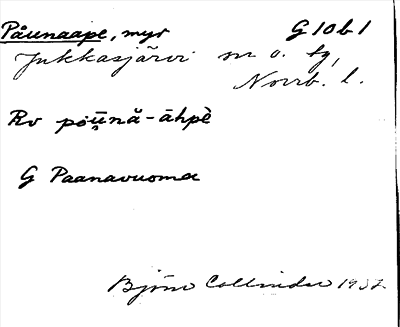 Påunaape, myr G10b1
Jukkasjärvi sn o. tg,
Norrb. l.
Rv pōu̮nǎ-āhpè
G Paanavuoma
Björn Collinder 1932.